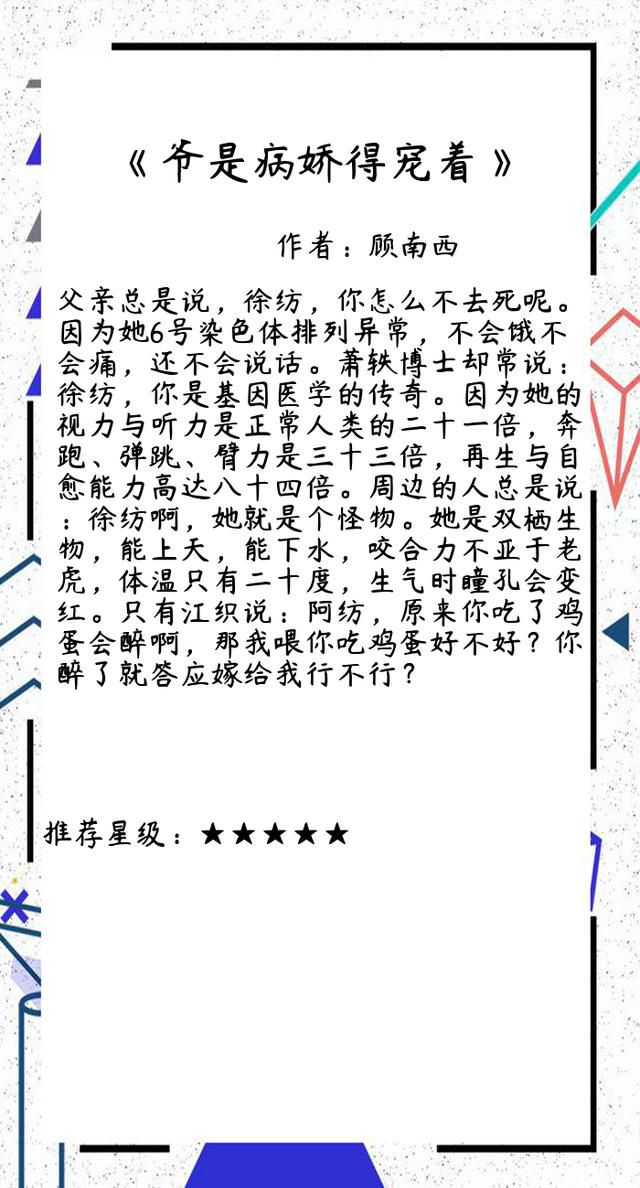 《爷是病娇得宠着》
作者：顾南西
父亲总是说，徐纺，你怎么不去死呢。
因为她6号染色体排列异常，不会饿不
会痛，还不会说话。萧轶博士却常说：
徐纺，你是基因医学的传奇。因为她的
视力与听力是正常人类的二十一倍，奔
跑、弹跳、臂力是三十三倍，再生与自
愈能力高达八十四倍。周边的人总是说
：徐纺啊，她就是个怪物。她是双栖生
物，能上天，能下水，咬合力不亚于老
虎，体温只有二十度，生气时瞳孔会变
红。只有江织说：阿纺，原来你吃了鸡
蛋会醉啊，那我喂你吃鸡蛋好不好？你
醉了就答应嫁给我行不行？
推荐星级：★★★★★